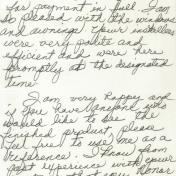 for payment in full. I am
so pleased with the windows
and awnings. Your installers
were very polite and
efficient and were here
promptly at the designated
time.
I am very happy and
if you have anyone who
would like to see the
finished product, please
feel free to use me as a
reference. I know from
past experience with your
that your